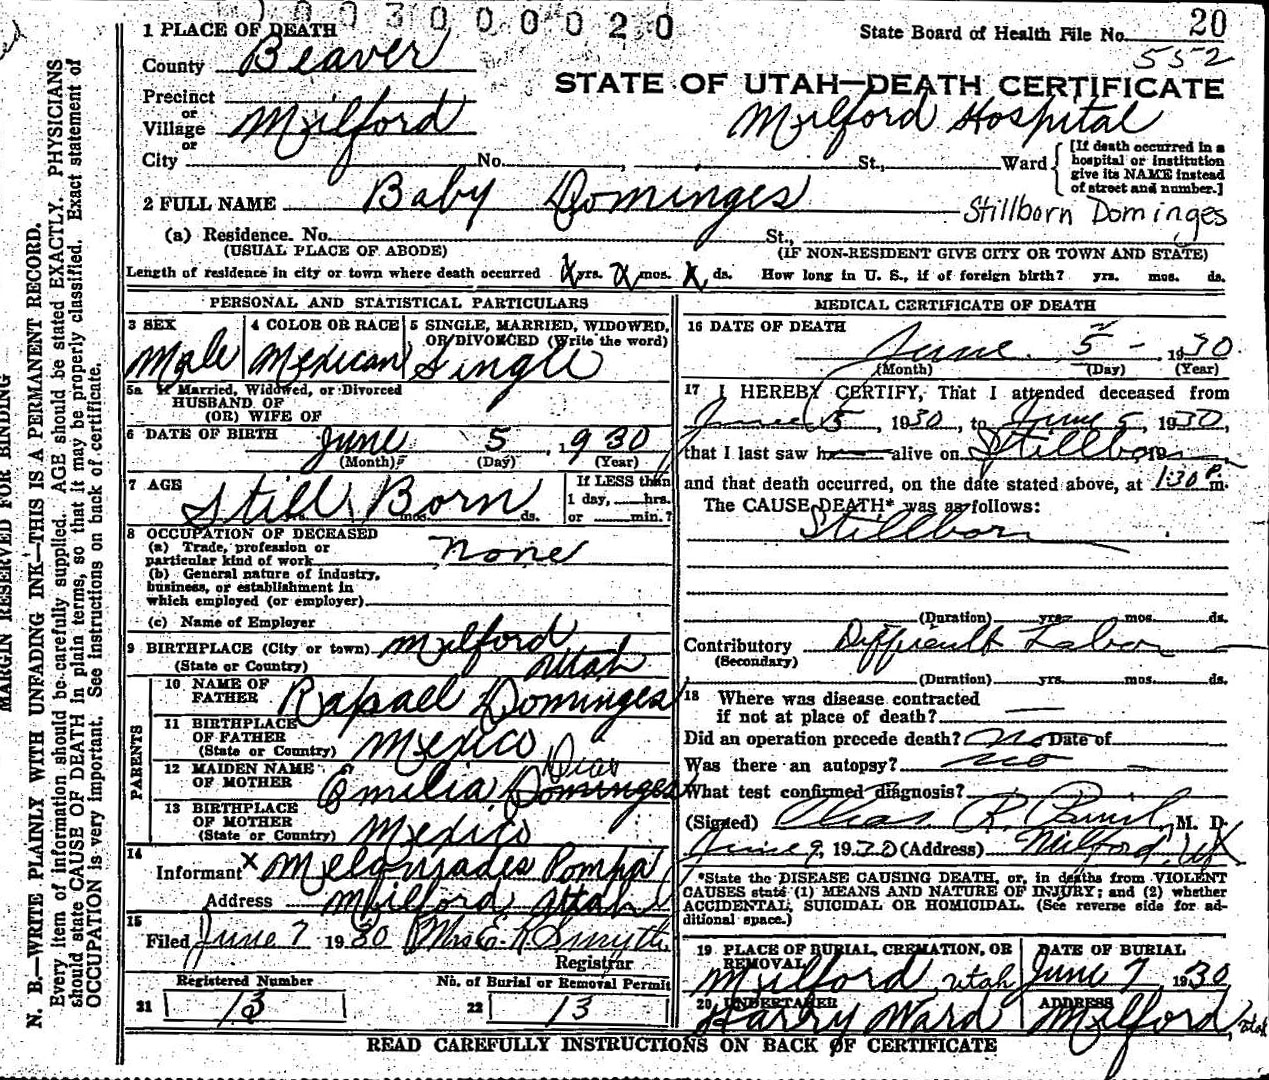 003000020
1 PLACE OF DEATH
State Board of Health File No. 20
552
County Beaver
STATE OF UTAH—DEATH CERTIFICATE
Precinct
or
Village Milford
Milford Hospital
or
City No. St., Ward
[If death occurred in a
hospital or institution
give its NAME instead
of street and number.]
2 FULL NAME Baby Dominges
Stillborn Dominges
(a) Residence. No. St.,
(USUAL PLACE OF ABODE) (IF NON-RESIDENT GIVE CITY OR TOWN AND STATE)
Length of residence in city or town where death occurred X yrs. X mos. X ds. How long in U. S., if of foreign birth? yrs. mos. ds.
PERSONAL AND STATISTICAL PARTICULARS
3 SEX 4 COLOR OR RACE 5 SINGLE, MARRIED, WIDOWED,
OR DIVORCED (Write the word)
Male Mexican Single
5a If Married, Widowed, or Divorced
HUSBAND OF
(OR) WIFE OF
6 DATE OF BIRTH June 5, 1930
(Month) (Day) (Year)
7 AGE Still Born
mos. ds.
If LESS than
1 day, hrs.
or min.?
8 OCCUPATION OF DECEASED
(a) Trade, profession or
particular kind of work none
(b) General nature of industry,
business, or establishment in
which employed (or employer)
(c) Name of Employer
9 BIRTHPLACE (City or town) Milford
(State or Country) Utah
PARENTS
10 NAME OF
FATHER Rafael Dominges
11 BIRTHPLACE
OF FATHER
(State or Country) Mexico
12 MAIDEN NAME
OF MOTHER Emilia Dominges
Dias
13 BIRTHPLACE
OF MOTHER
(State or Country) Mexico
14
Informant X Melquiades Pompa
Address Milford, Utah
15
Filed June 7 1930 Mrs E. R. Smyth
Registrar
Registered Number No. of Burial or Removal Permit
21 13 22 13
MEDICAL CERTIFICATE OF DEATH
16 DATE OF DEATH
June 5 - 1930
(Month) (Day) (Year)
17 I HEREBY CERTIFY, That I attended deceased from
June 5, 1930, to June 5, 1930,
that I last saw h alive on Stillborn, 19
and that death occurred, on the date stated above, at 1:30 P. m.
The CAUSE DEATH* was as follows:
Stillborn
(Duration) yrs. mos. ds.
Contributory Difficult Labor
(Secondary)
(Duration) yrs. mos. ds.
18 Where was disease contracted
if not at place of death?
Did an operation precede death? no Date of
Was there an autopsy? no
What test confirmed diagnosis?
(Signed) Chas. R. , M. D.
June 9, 1930 (Address) Milford, Ut
*State the DISEASE CAUSING DEATH, or, in deaths from VIOLENT
CAUSES state (1) MEANS AND NATURE OF INJURY; and (2) whether
ACCIDENTAL, SUICIDAL OR HOMICIDAL. (See reverse side for ad-
ditional space.)
19 PLACE OF BURIAL, CREMATION, OR
REMOVAL DATE OF BURIAL
Milford, Utah June 7 1930
20 UNDERTAKER ADDRESS
Harry Ward Milford, Utah
READ CAREFULLY INSTRUCTIONS ON BACK OF CERTIFICATE
MARGIN RESERVED FOR BINDING
N. B.—WRITE PLAINLY WITH UNFADING INK—THIS IS A PERMANENT RECORD.
Every item of information should be carefully supplied. AGE should be stated EXACTLY. PHYSICIANS
should state CAUSE OF DEATH in plain terms, so that it may be properly classified. Exact statement of
OCCUPATION is very important. See instructions on back of certificate.